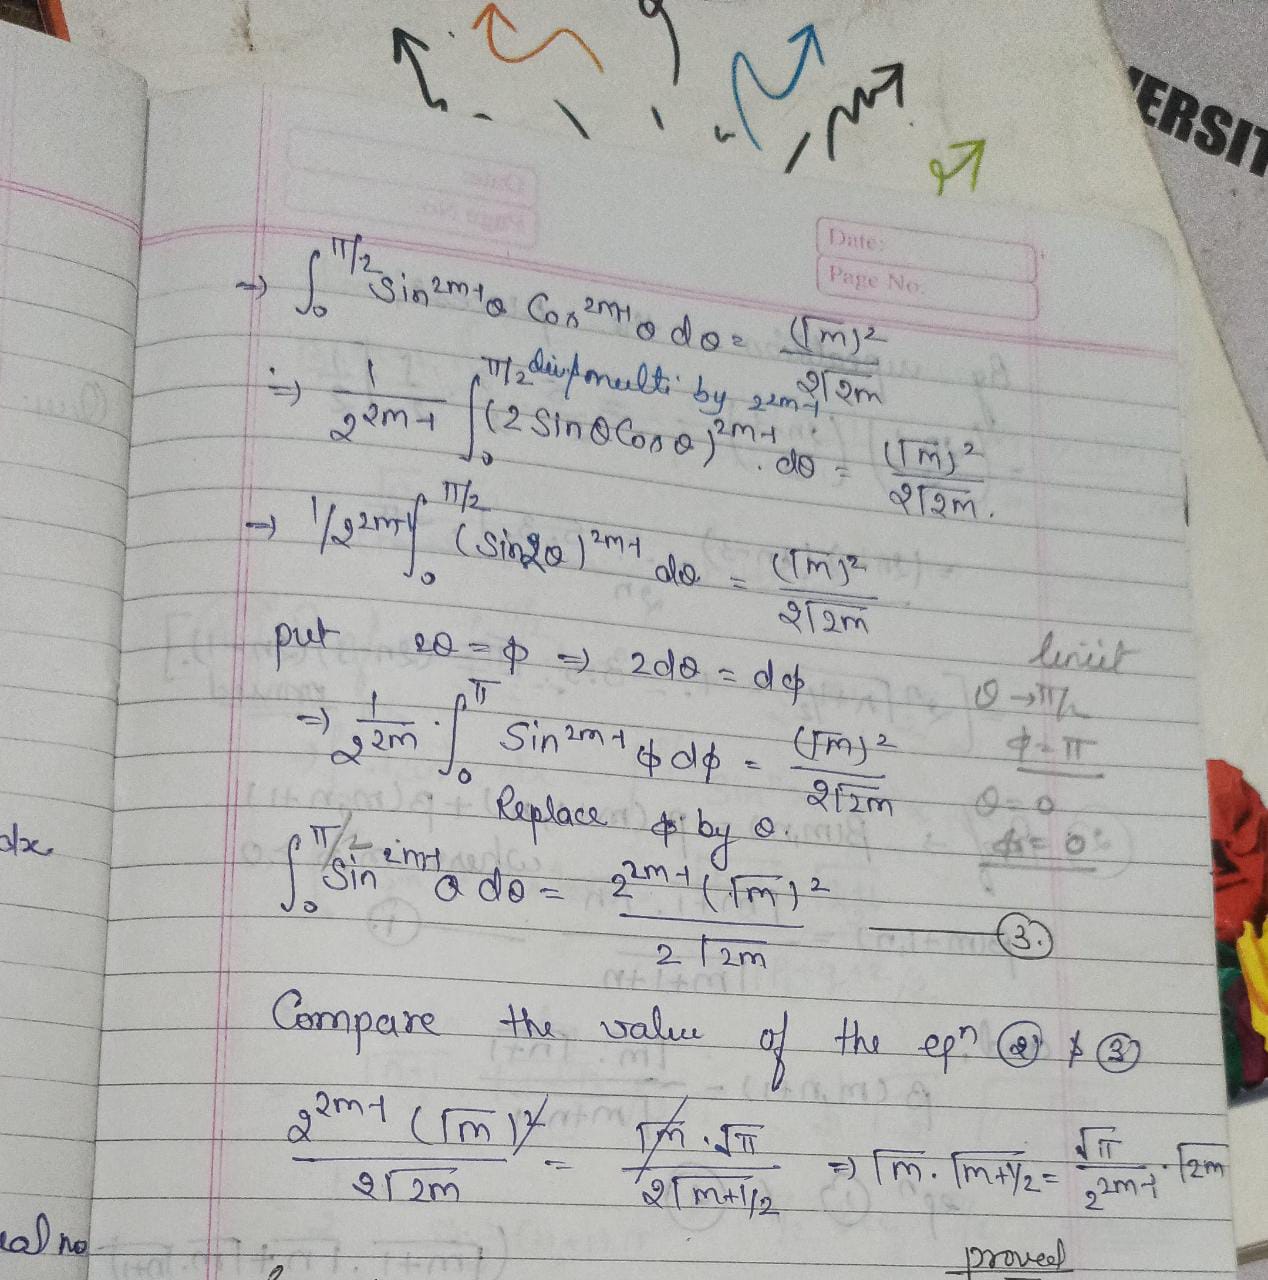 ERSIT
Date:
Page No.
⇒ ∫₀^π/2 Sin^2m-1 θ Cos^2m-1 θ dθ = (√m)² / 2√2m
div & multi by 2^2m-1
⇒ 1/2^2m-1 ∫₀^π/2 (2 Sinθ Cosθ)^2m-1 . dθ = (√m)² / 2√2m.
⇒ 1/2^2m-1 ∫₀^π/2 (Sin2θ)^2m-1 dθ = (√m)² / 2√2m
put 2θ = ϕ ⇒ 2dθ = dϕ
limit
θ → π/2
ϕ = π
θ = 0
ϕ = 0
⇒ 1/2^2m . ∫₀^π Sin^2m-1 ϕ dϕ = (√m)² / 2√2m
Replace ϕ by θ.
∫₀^π/2 Sin^2m-1 θ dθ = 2^2m-1 (√m)² / 2√2m — (3.)
Compare the value of the eqⁿ (2) & (3)
2^2m-1 (√m)² / 2√2m = √m . √π / 2√m+1/2 ⇒ √m . √m+1/2 = √π / 2^2m-1 . √2m
proved
dx
eal no